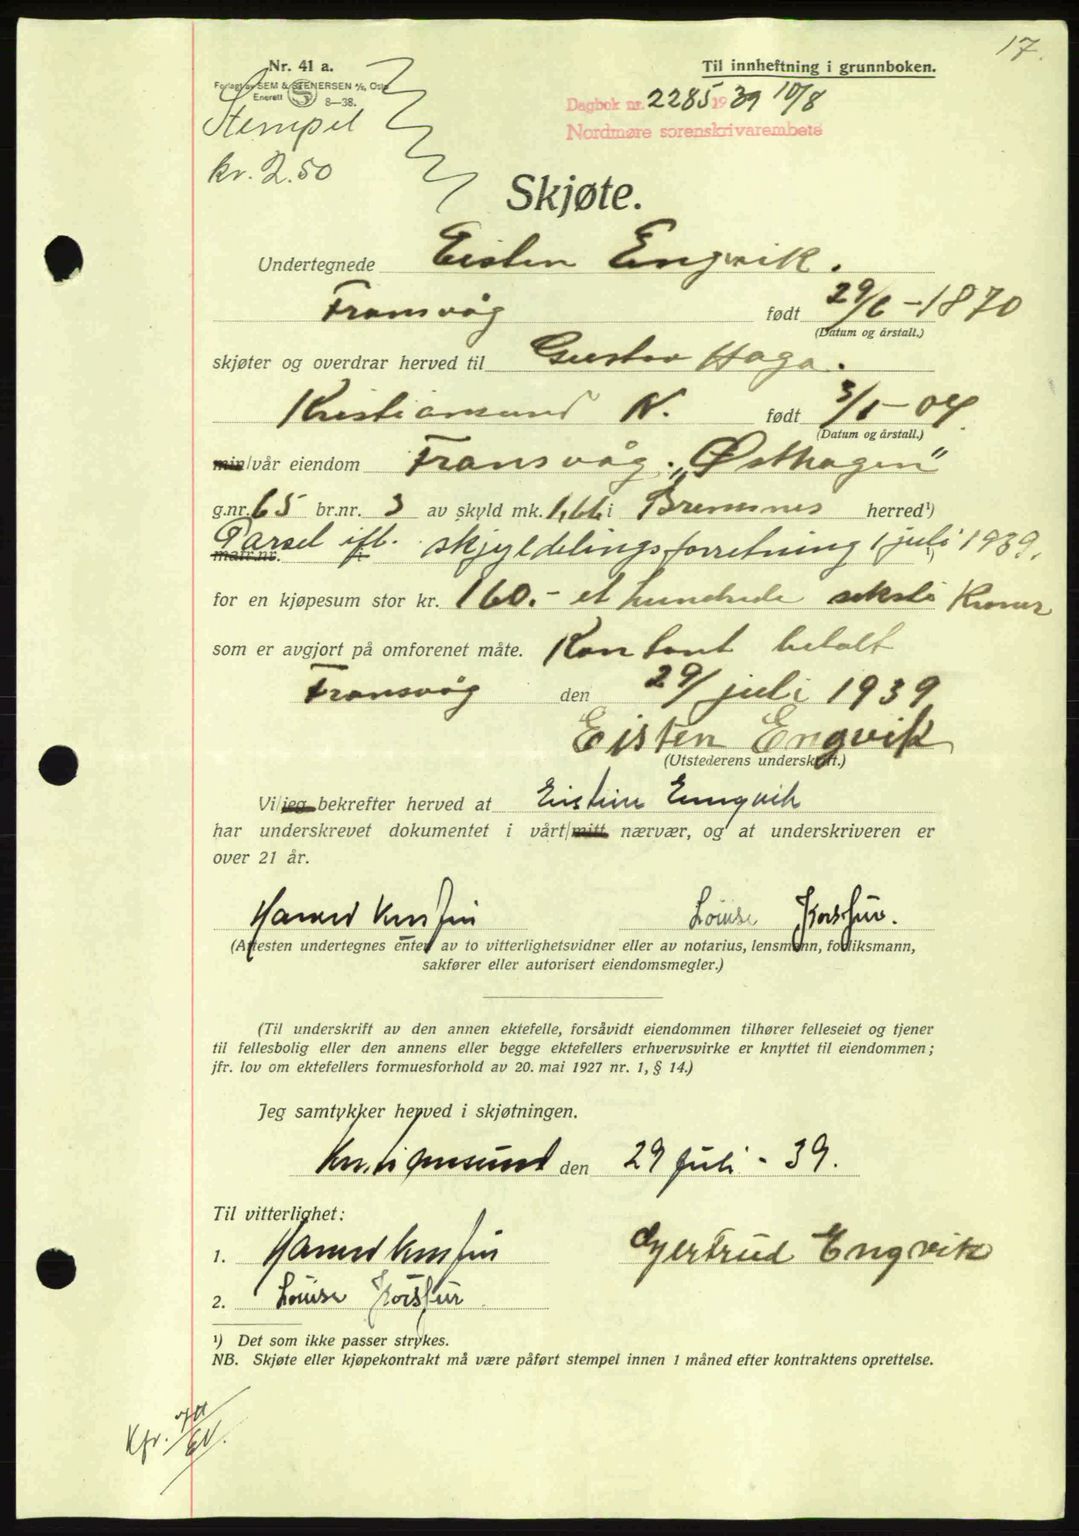 17.
Nr. 41 a.
Forlagt av SEM & STENERSEN A/S, Oslo
Enerett S 8—38.
Til innheftning i grunnboken.
Stempel
kr. 2.50
Dagbok nr. 2285 1939 10/8
Nordmøre sorenskrivarembete
Skjøte.
Undertegnede Eisten Engvik.
Fransvåg født 29/6 - 1870
(Datum og årstall.)
skjøter og overdrar herved til Gustav Haga.
Kristiansund N. født 3/1 - 04.
(Datum og årstall.)
min/vår eiendom Fransvåg. „Østhagen"
g.nr. 65 br.nr. 3 av skyld mk. 1,66 i Bremsnes herred¹)
matr.nr. Parsel ifl. skjyldelingsforretning 1 juli 1939.
for en kjøpesum stor kr. 160.- et hundrede seksti Kroner
som er avgjort på omforenet måte. Kontant betalt
Fransvåg den 29/ juli 1939
Eisten Engvik
(Utstederens underskrift.)
Vi/jeg bekrefter herved at Eistein Enngvik
har underskrevet dokumentet i vårt/mitt nærvær, og at underskriveren er
over 21 år.
Louise Korsfur.
(Attesten undertegnes enten av to vitterlighetsvidner eller av notarius, lensmann, forliksmann,
sakfører eller autorisert eiendomsmegler.)
(Til underskrift av den annen ektefelle, forsåvidt eiendommen tilhører felleseiet og tjener
til fellesbolig eller den annens eller begge ektefellers erhvervsvirke er knyttet til eiendommen;
jfr. lov om ektefellers formuesforhold av 20. mai 1927 nr. 1, § 14.)
Jeg samtykker herved i skjøtningen.
Kristiansund den 29 juli - 39.
Til vitterlighet:
1. Gjertrud Engvik
2. Louise Korsfur
¹) Det som ikke passer strykes.
NB. Skjøte eller kjøpekontrakt må være påført stempel innen 1 måned efter kontraktens oprettelse.
Kfr.